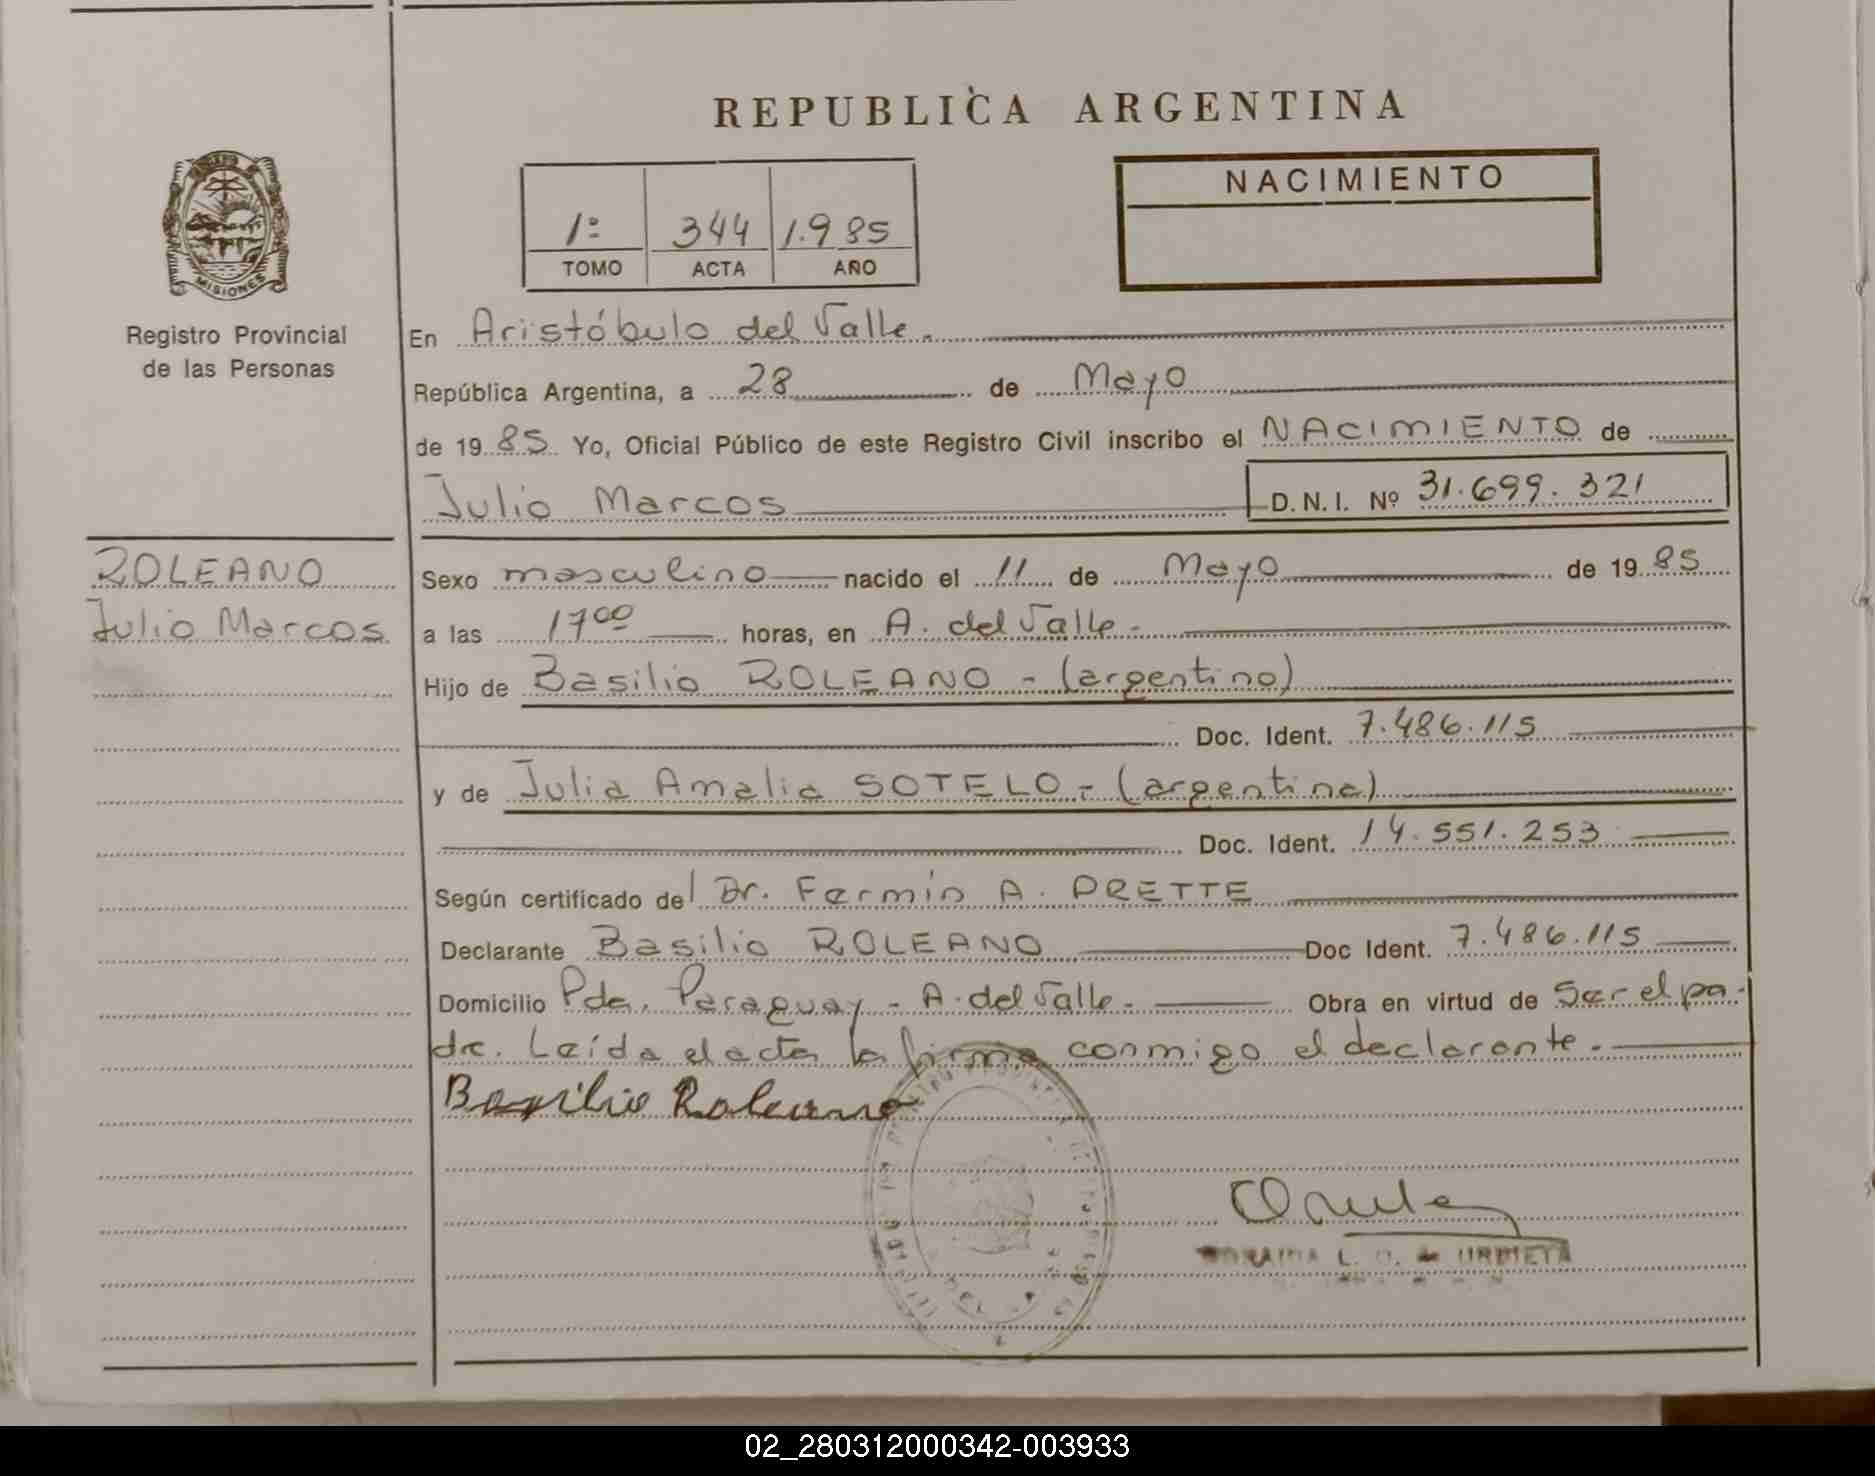 REPUBLICA ARGENTINA
MISIONES
Registro Provincial
de las Personas
1º 344 1.985
TOMO ACTA AÑO
NACIMIENTO
En Aristóbulo del Valle.
República Argentina, a 28 de Mayo
de 1985 Yo, Oficial Público de este Registro Civil inscribo el NACIMIENTO de
Julio Marcos D.N.I. Nº 31.699.321
ROLEANO
Julio Marcos
Sexo masculino nacido el 11 de Mayo de 1985
a las 17⁰⁰ horas, en A. del Valle.
Hijo de Basilio ROLEANO - (argentino)
Doc. Ident. 7.486.115
y de Julia Amalia SOTELO - (argentina)
Doc. Ident. 14.551.253
Según certificado del Dr. Fermín A. PRETTE
Declarante Basilio ROLEANO Doc Ident. 7.486.115
Domicilio Pda. Paraguay - A. del Valle. Obra en virtud de Ser el pa-
dre. Leída el acta la firma conmigo el declarante.
Basilio Roleano
L. O. de URDIETA
02_280312000342-003933